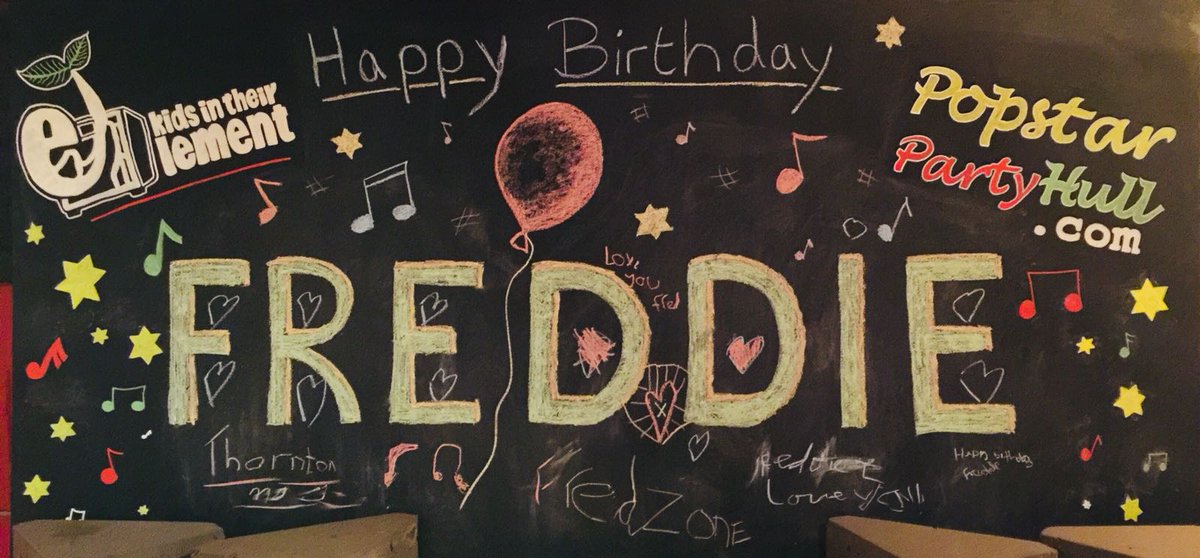 Happy Birthday
kids in their
element
Popstar
PartyHull
.com
FREDDIE
Love
you
fred
Thornton
FredZone
Love
Happy birthday